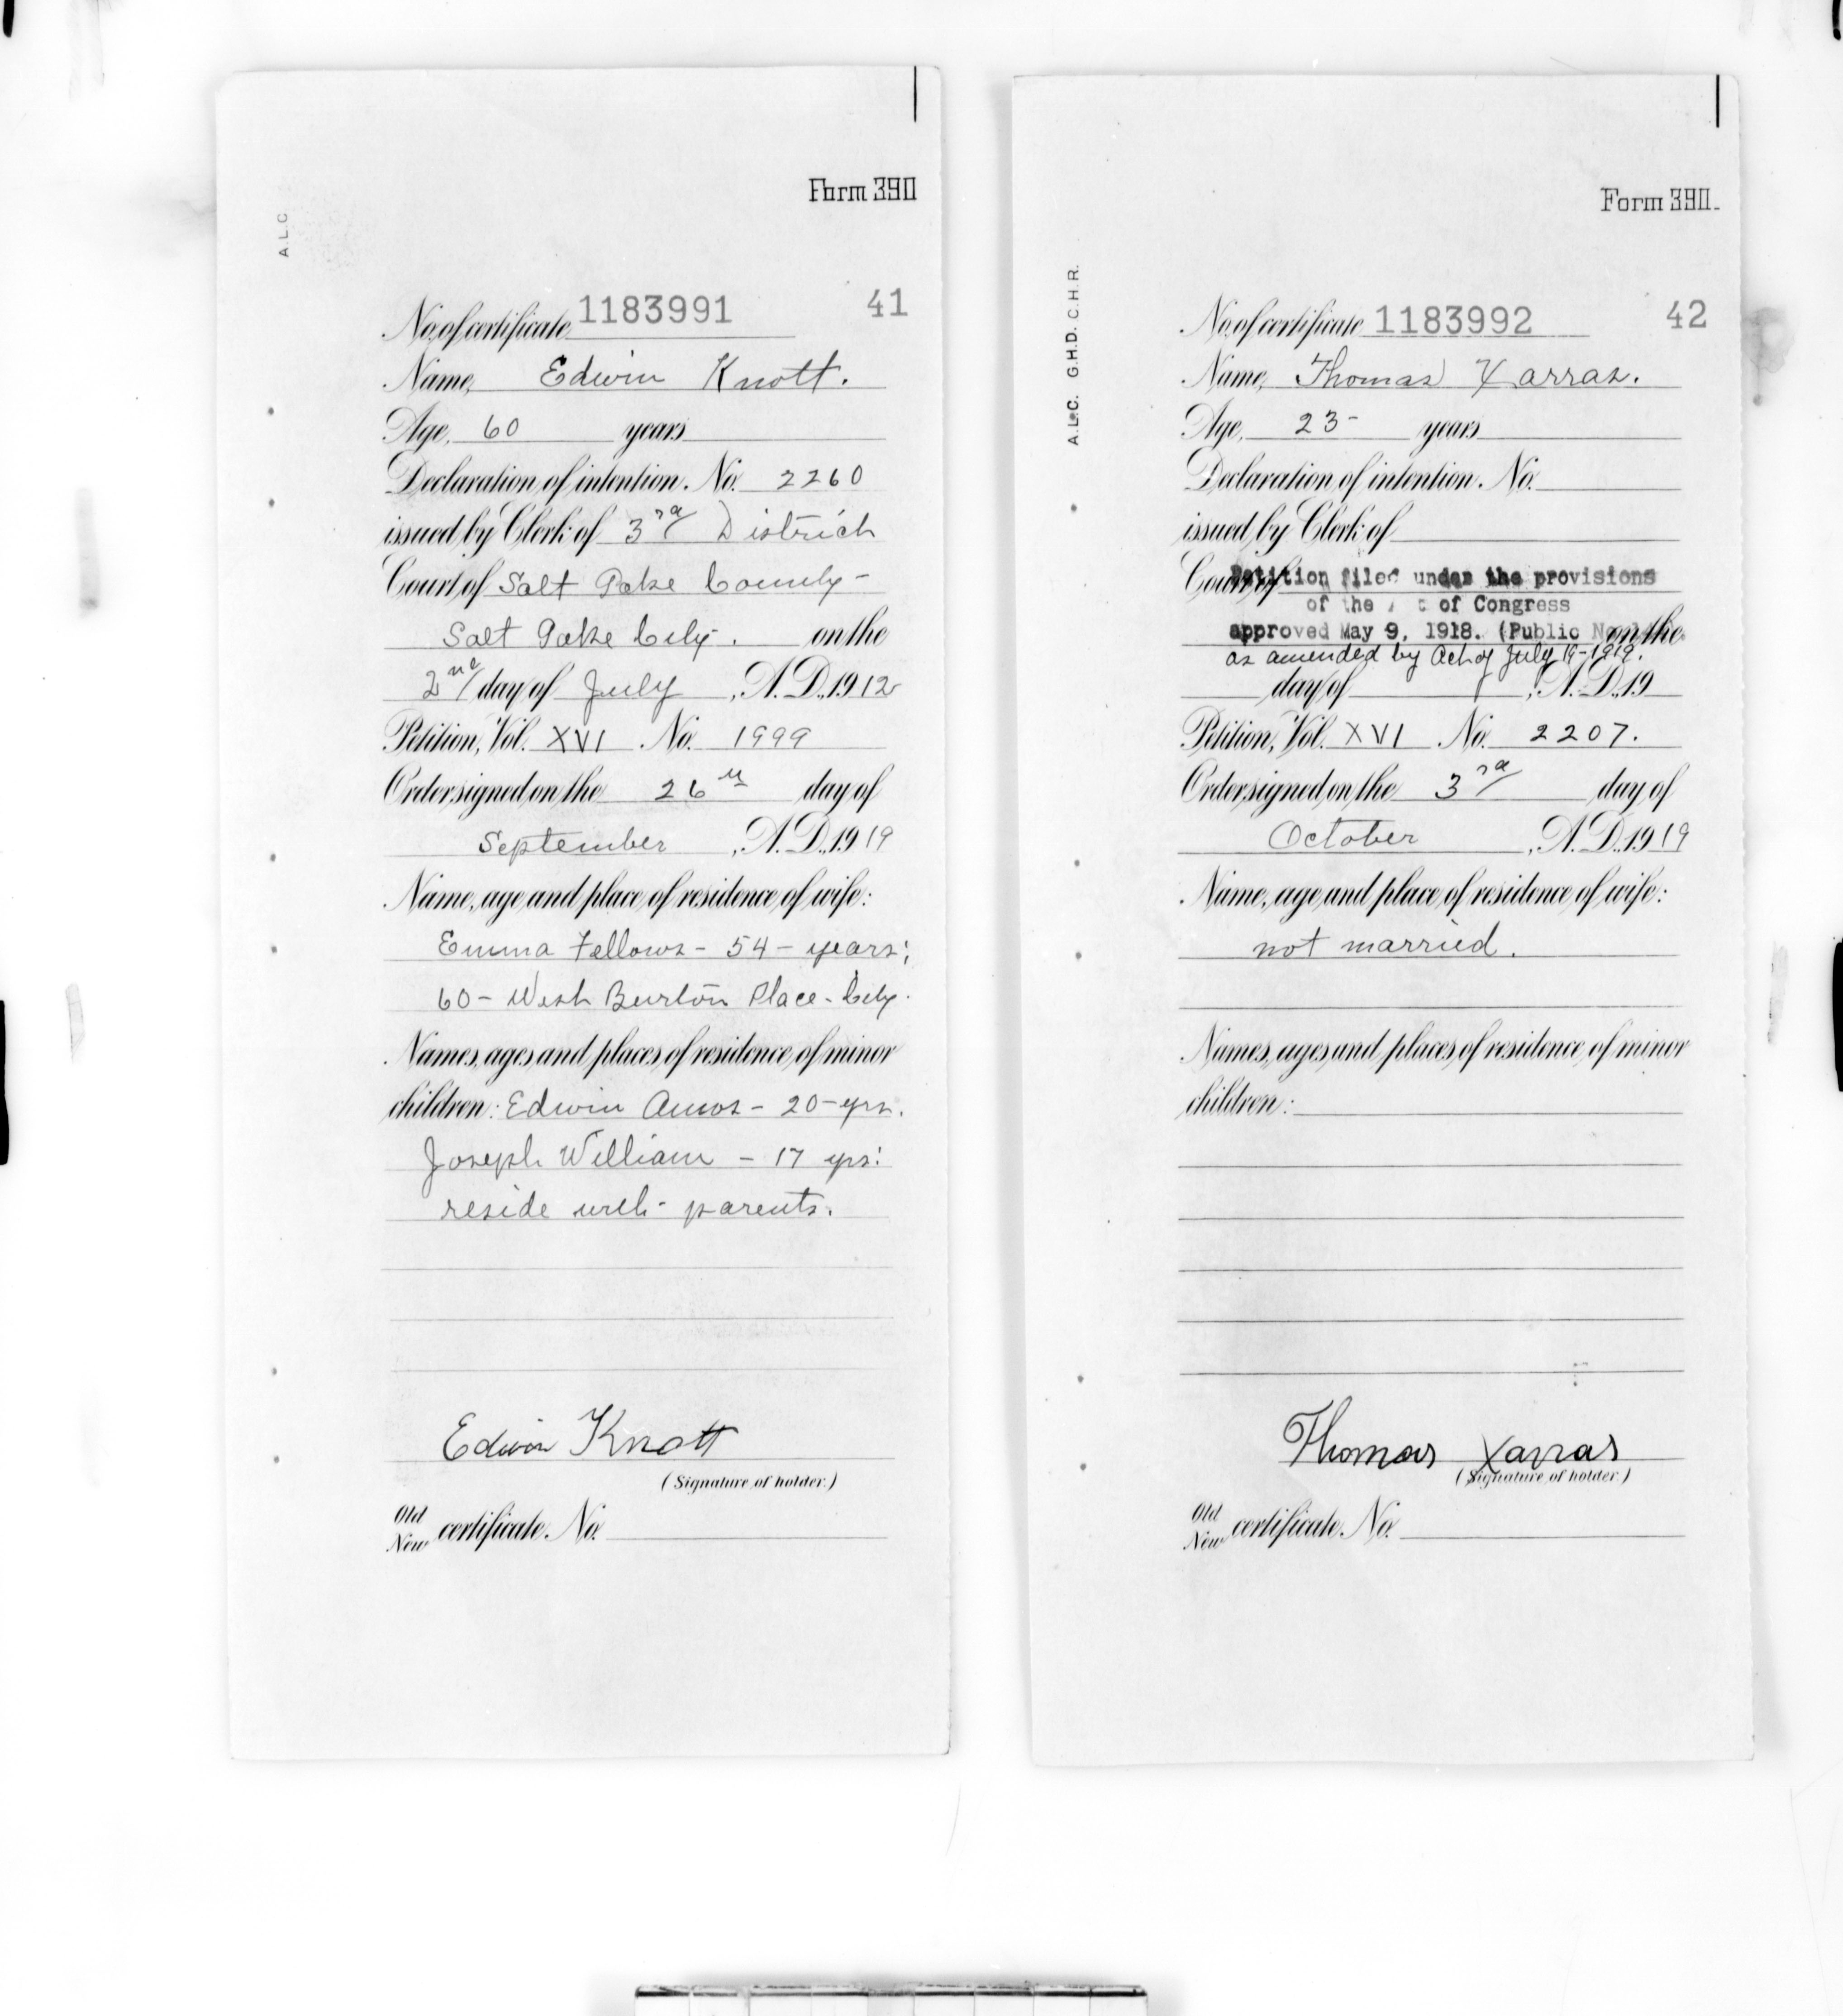 Form 390
A.L.C.
No. of certificate, 1183991 41
Name, Edwin Knott.
Age, 60 years
Declaration of intention. No. 2260
issued by Clerk of 3rd District
Court of Salt Lake County -
Salt Lake City. on the
2nd day of July, A.D., 1912
Petition, Vol. XVI No. 1999
Order signed on the 26th day of
September, A.D., 1919
Name, age and place of residence of wife:
Emma Fellows - 54 - years;
60 - West Burton Place - City.
Names, ages and places of residence of minor
children: Edwin Amos - 20 - yrs.
Joseph William - 17 yrs:
reside with parents.
Edwin Knott
(Signature of holder.)
Old
New certificate. No.
Form 390.
A.L.C. G.H.D. C.H.R.
No. of certificate, 1183992 42
Name, Thomas Xarras.
Age, 23 - years
Declaration of intention. No.
issued by Clerk of
Court of Petition filed under the provisions
of the of Congress
approved May 9, 1918. (Public on the
as amended by Act of July 19 - 1919.
day of , A.D., 19
Petition, Vol. XVI No. 2207.
Order signed on the 3rd day of
October, A.D., 1919
Name, age and place of residence of wife:
not married.
Names, ages and places of residence of minor
children:
Thomas Xarras
(Signature of holder.)
Old
New certificate. No.